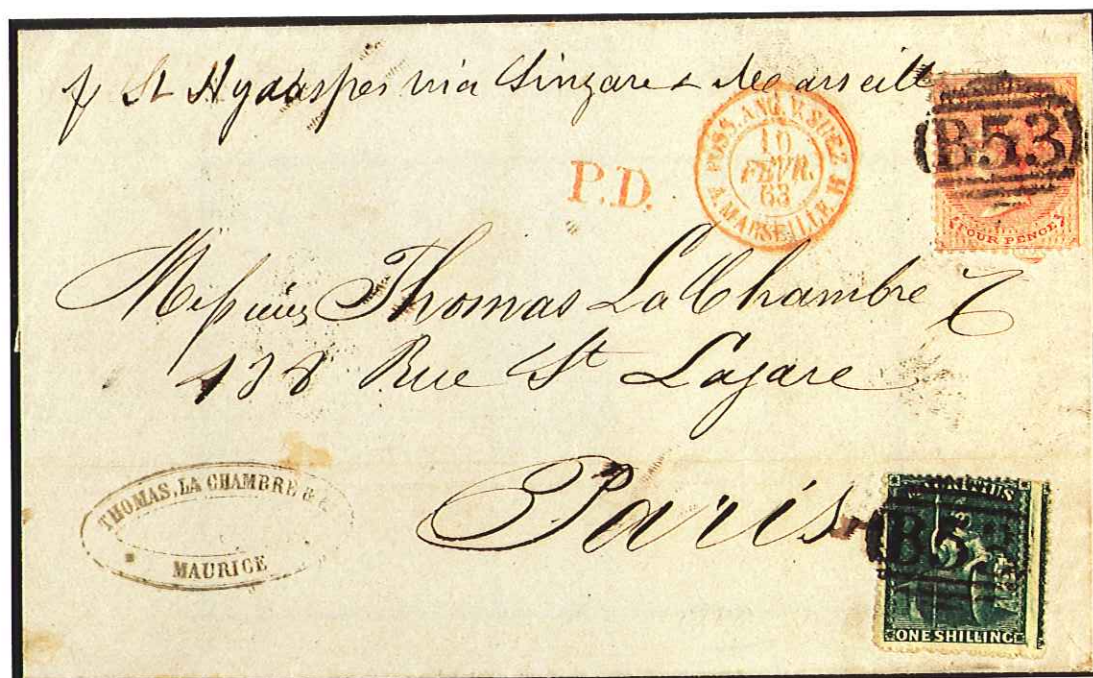 p St Hydaspes via Singare & Marseille
P.D.
POSS. ANG. V. SUEZ
10
FEVR.
63
A MARSEILLE H
B53
FOUR PENCE
Messieurs Thomas La Chambre &
138 Rue St Lazare
Paris
THOMAS, LA CHAMBRE &
MAURICE
B5
ONE SHILLING